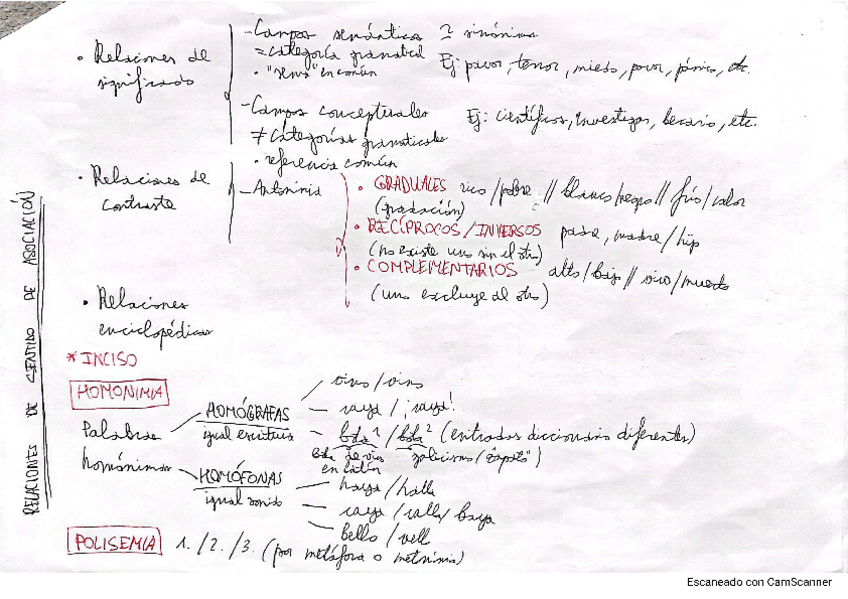 RELACIONES DE SENTIDO DE ASOCIACIÓN
• Relaciones de significado
- Campos semánticos ≃ sinónimos
= categoría gramatical
• "sema" en común
Ej: pavor, temor, miedo, pavor, pánico, etc.
- Campos conceptuales
≠ categorías gramaticales
• referencia común
Ej: científicos, investigar, becario, etc.
• Relaciones de contraste
- Antonimia
• GRADUALES rico / pobre // blanco/negro // frío / calor
(gradación)
• RECÍPROCOS / INVERSOS padre, madre / hijo
(no existe uno sin el otro)
• COMPLEMENTARIOS alto / bajo // vivo / muerto
(uno excluye al otro)
• Relaciones
enciclopédicas
* INCISO
HOMONIMIA
Palabras
homónimas
HOMÓGRAFAS
igual escritura
vino / vino
vaya / ¡vaya!
bota¹ / bota² (entradas diccionario diferentes)
bota de vino
en latín
galicismo ("zapato")
HOMÓFONAS
igual sonido
haya / halla
vaya / valla / baya
bello / vello
POLISEMIA 1. / 2. / 3. (por metáfora o metonimia)
Escaneado con CamScanner